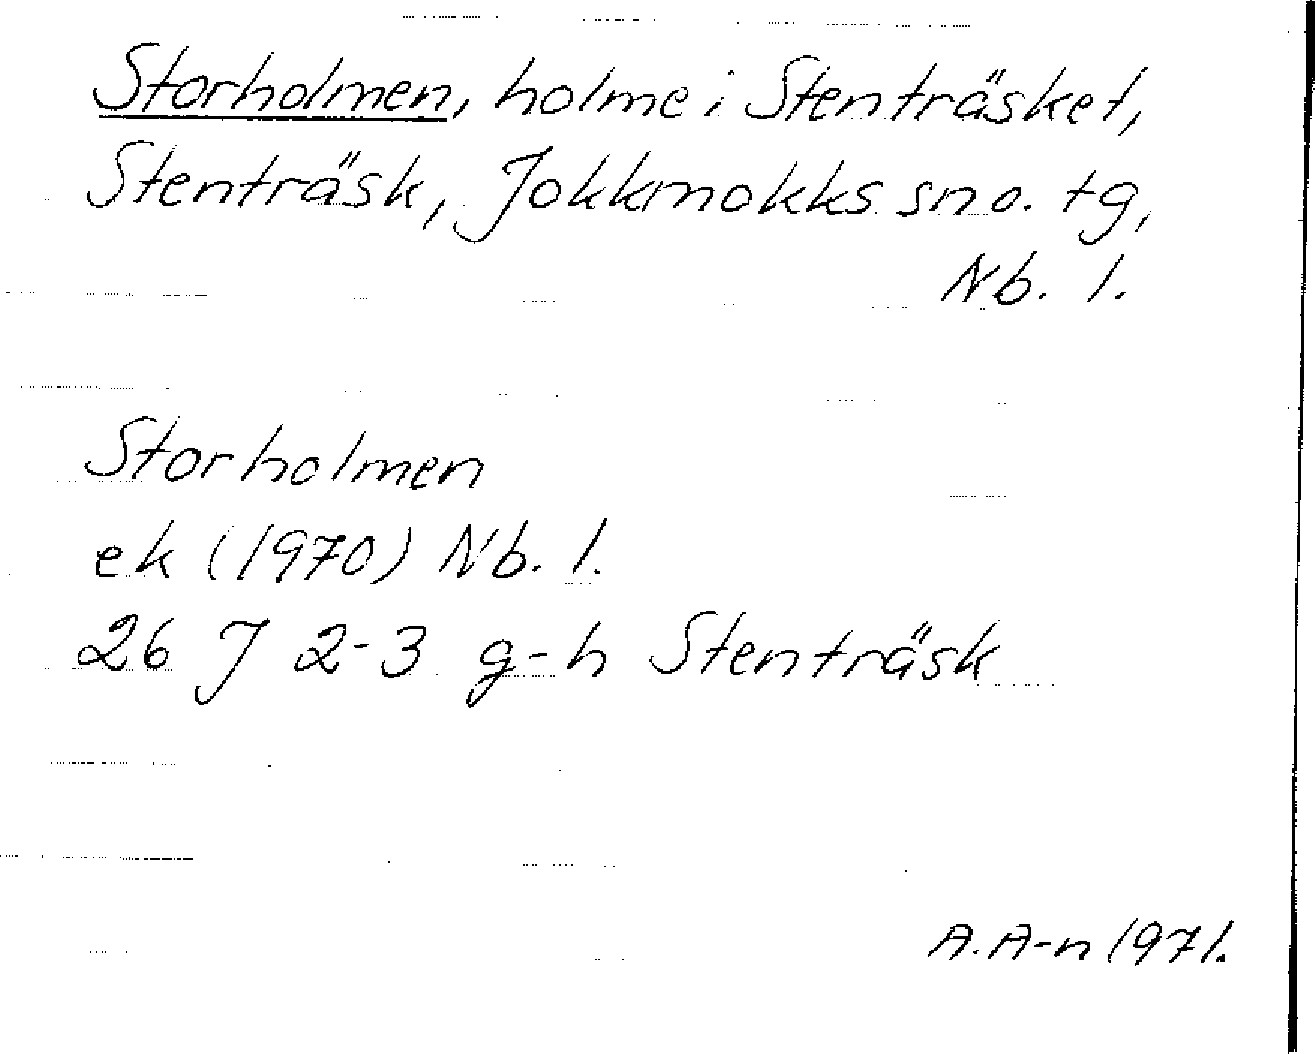 Storholmen, holme i Stenträsket,
Stenträsk, Jokkmokks sno. tg,
Nb. l.
Storholmen
ek (1970) Nb. l.
26 J 2-3 g-h Stenträsk
A. A-n 1971.